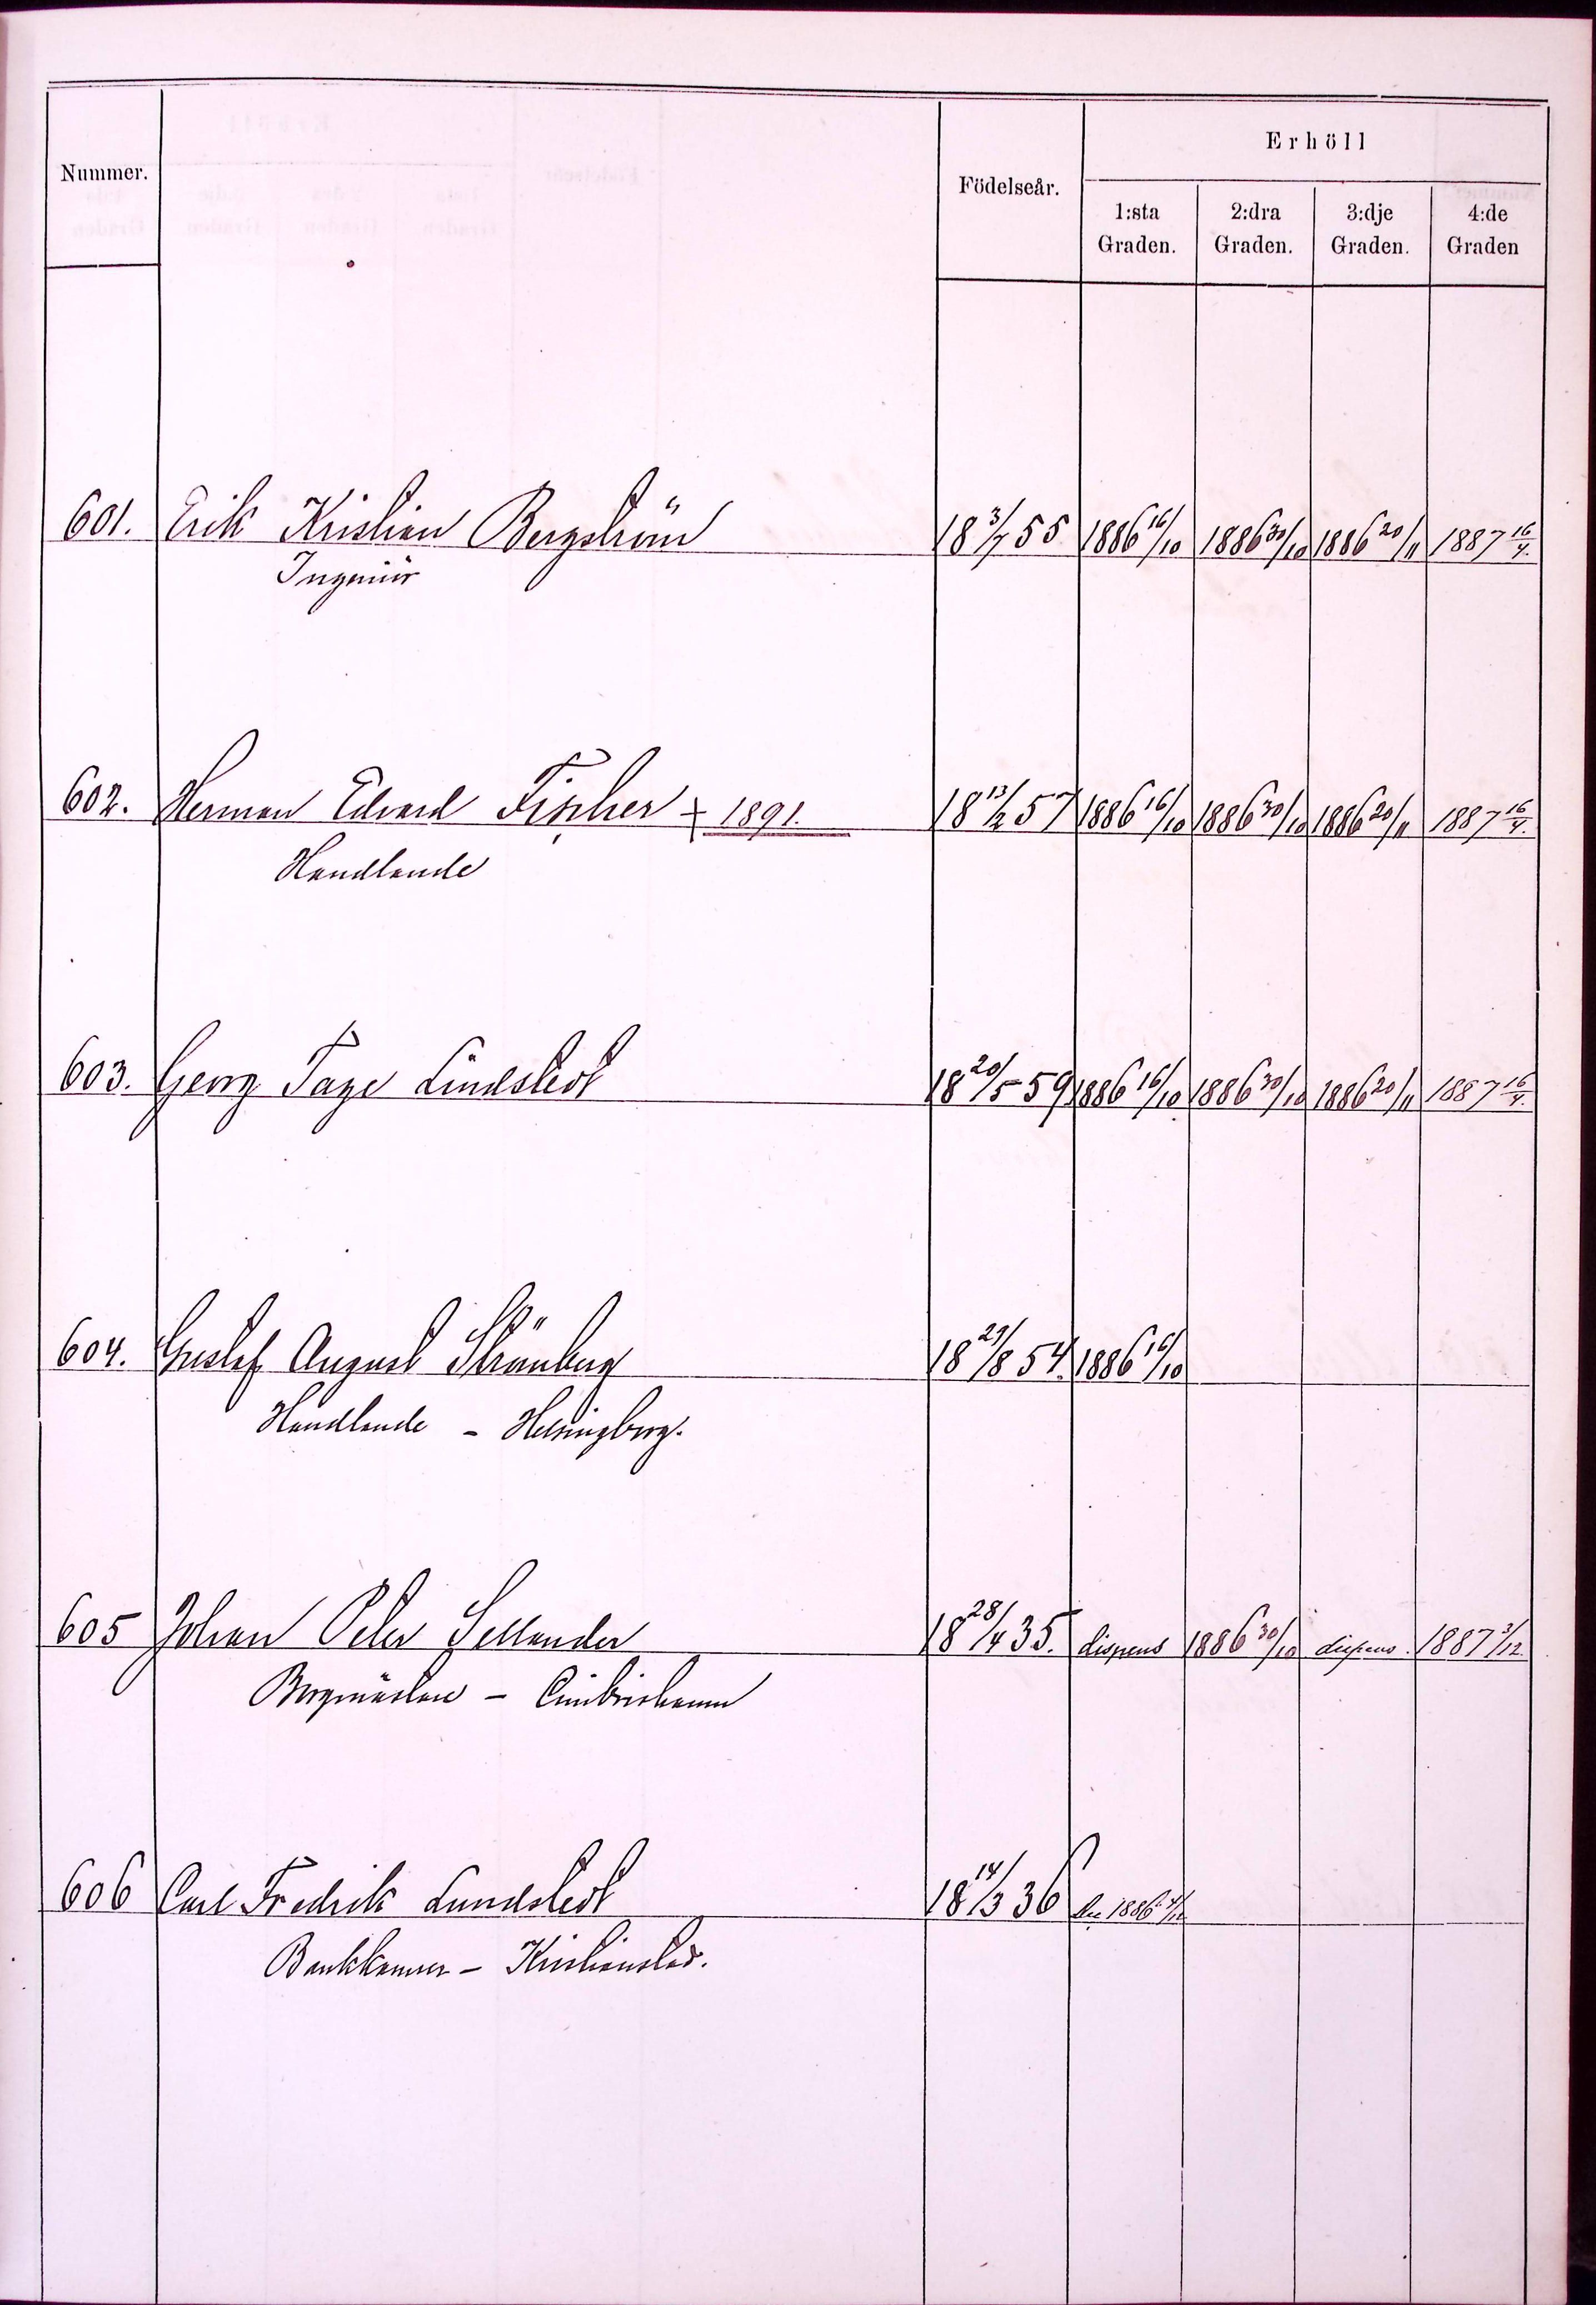 Nummer.
Födelseår.
Erhöll
1:sta Graden.
2:dra Graden.
3:dje Graden.
4:de Graden
601. Erik Kristian Bergström 18 3/7 55 1886 16/10 1886 30/10 1886 20/11 1887 16/4.
Ingeniör
602. Herman Edvard Fischer + 1891. 18 13/2 57 1886 16/10 1886 30/10 1886 20/11 1887 16/4.
Handlande
603. Georg Tage Lindstedt 18 20/5 59 1886 16/10 1886 30/10 1886 20/11 1887 16/4.
604. Gustaf August Strömberg 18 29/8 54. 1886 16/10
Handlande - Helsingborg.
605 Johan Peter Sellander 18 28/4 35. dispens 1886 30/10 dispens. 1887 3/12.
Borgmästare - Cimbrishamn
606 Carl Fredrik Lundstedt 18 14/3 36 1886 4/12
Bankkamrer - Kristianstad.